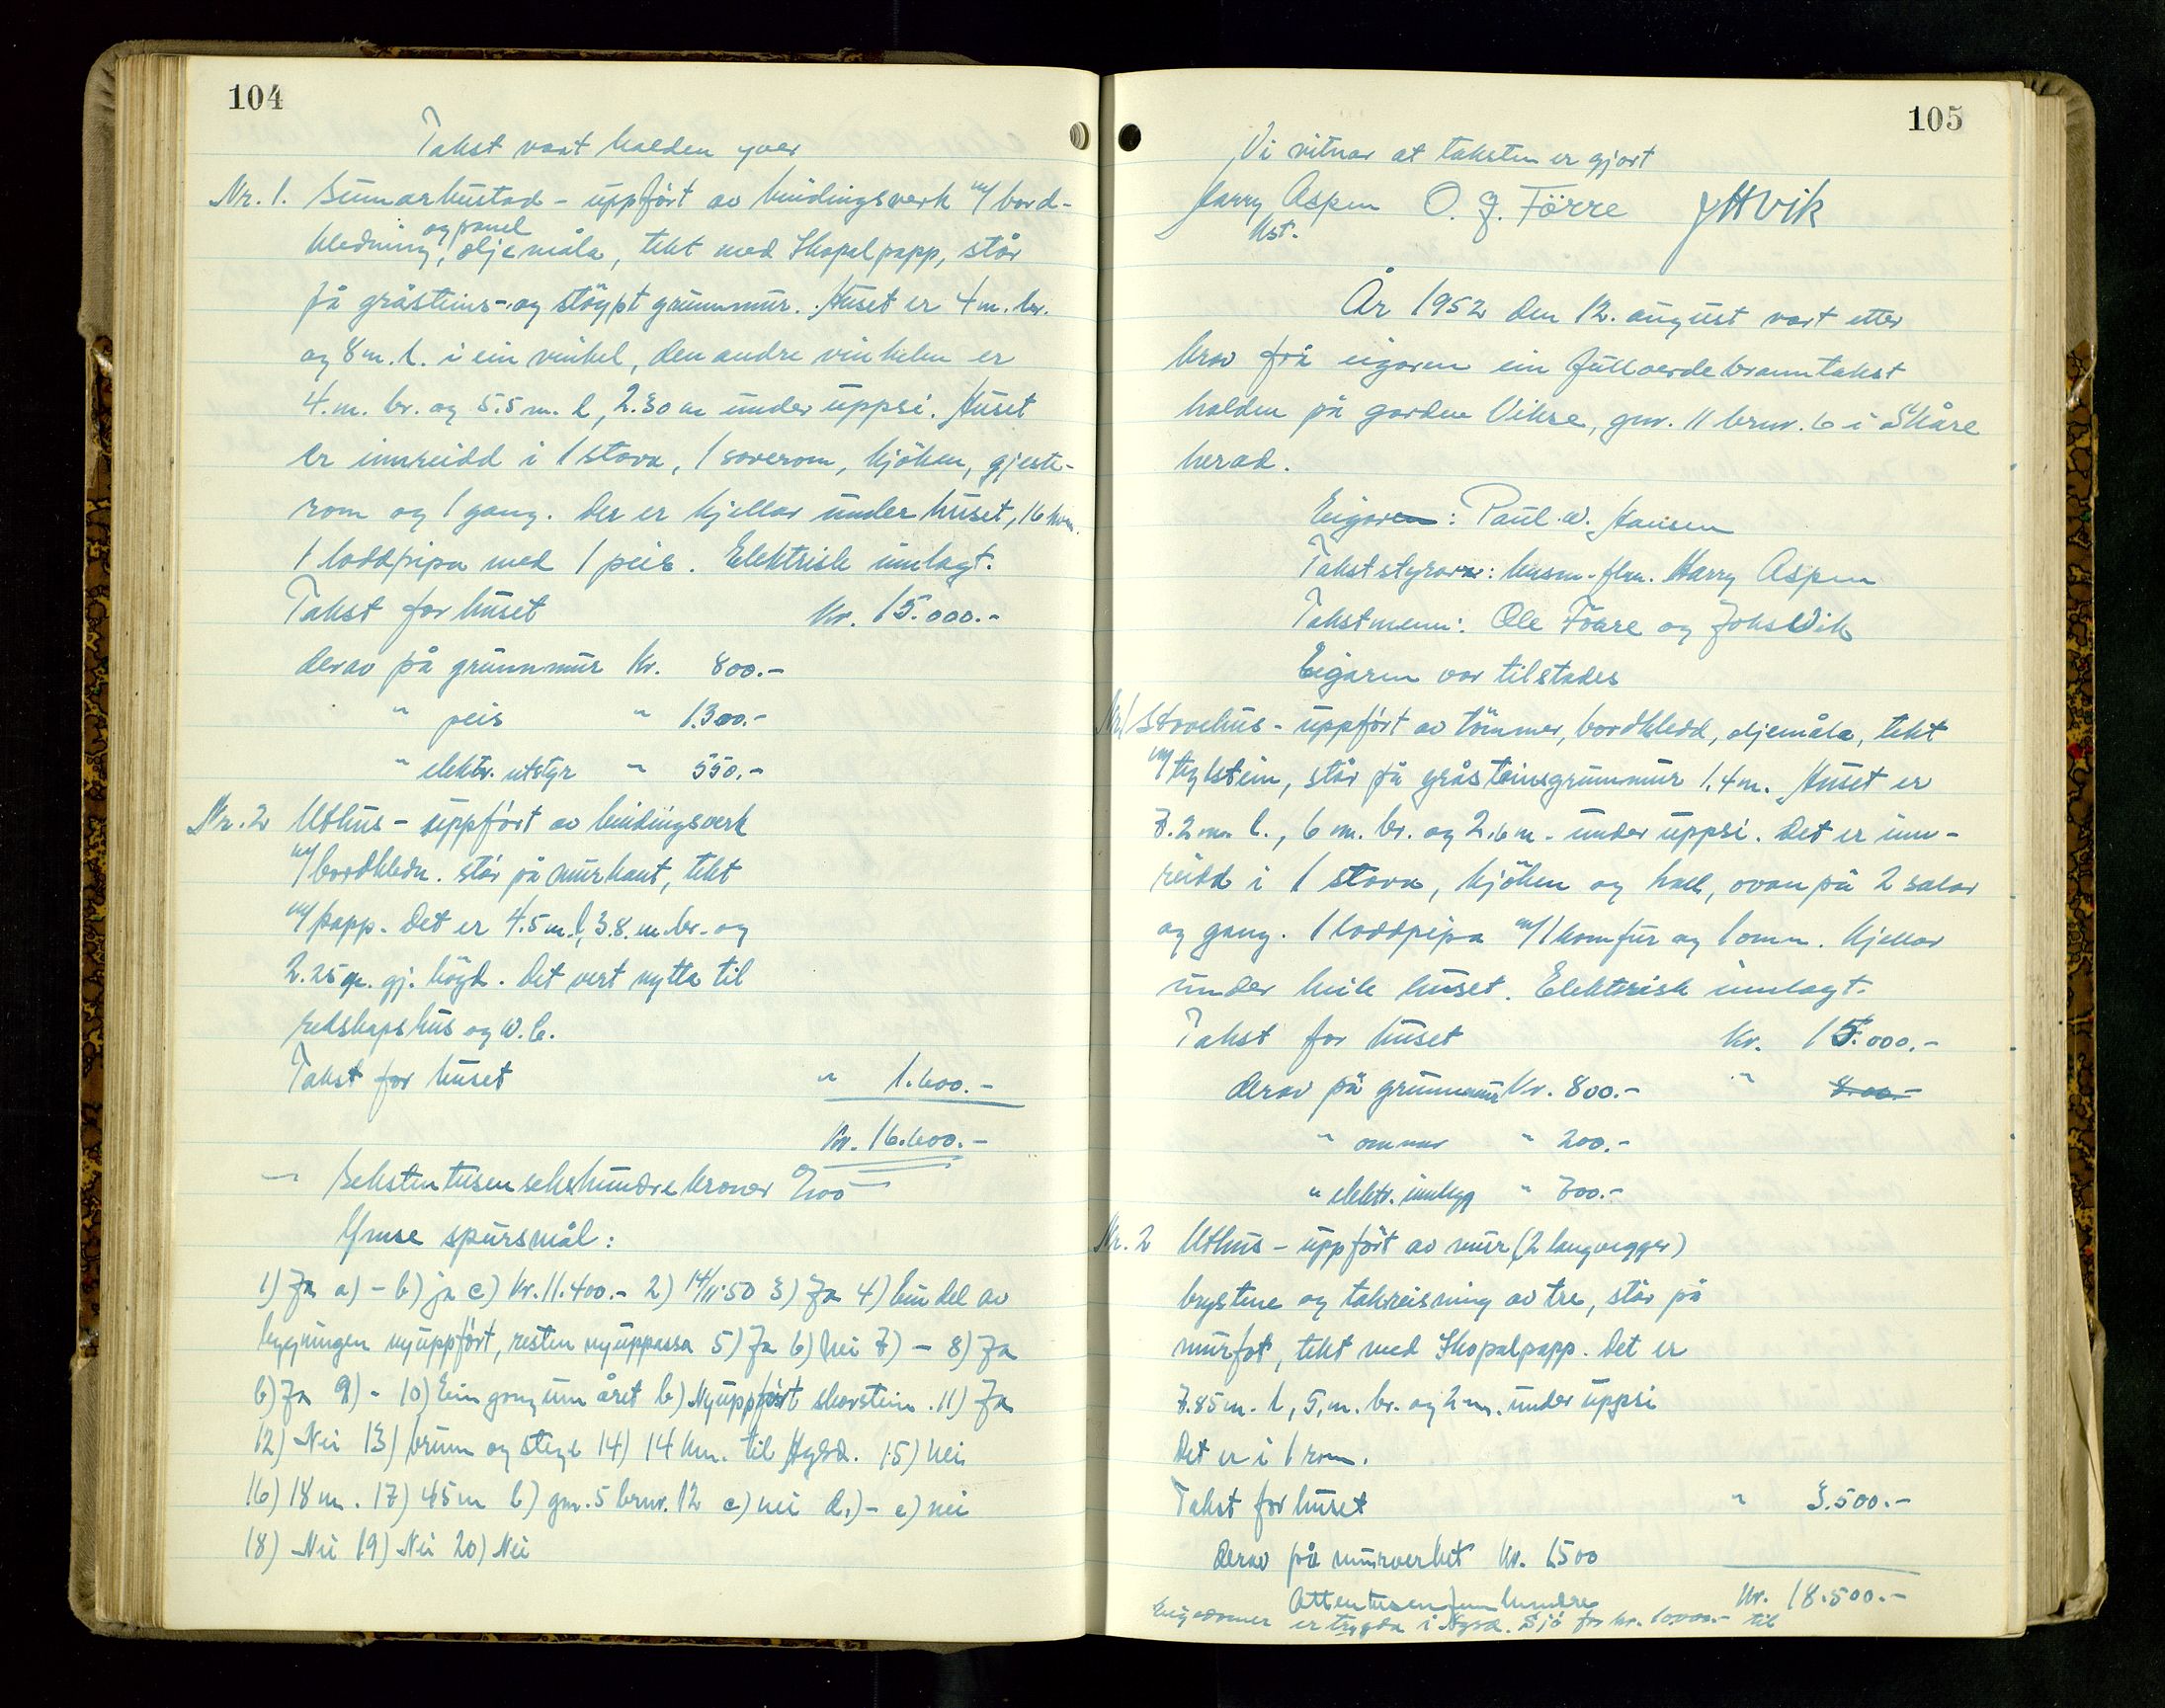 104
Takst vart halden yver
Nr. 1. Sumarhustad - uppført av bindingsverk m/ bord-
og panel
kledning, oljemåla, tekt med Shopalpapp, står
på gråsteins- og støypt grunnmur. Huset er 4 m. br.
og 8 m. l. i ein vinkel, den andre vinkelen er
4. m. br. og 5.5 m. l, 2.30 m under uppsi. Huset
er innreidd i 1 stova, 1 soverom, kjøken, gjeste-
rom og 1 gang. Der er kjellar under huset, 16 kvm.
1 loddpipa med 1 peis. Elektrisk innlagt.
Takst for huset Kr. 15.000.-
derav på grunnmur Kr. 800.-
" peis " 1.300.-
" elektr. utstyr " 550.-
Nr. 2 Uthus - uppført av bindingsverk
m/ bordkledn. står på murkant, tekt
m/ papp. Det er 4.5 m. l, 3.8. m. br. og
2.25 m. gj. høgd. Det vert nytta til
redskapshus og W.C.
Takst for huset " 1.600.-
Kr. 16.600.-
- Sekstentusensekshundre kroner
Ymse spursmål:
1) Ja a) - b) ja c) Kr. 11.400.- 2) 14/11.50 3) Ja 4) Ein del av
bygningen nyuppført, resten nyuppussa 5) Ja 6) Nei 7) - 8) Ja
b) Ja 9) - 10) Ein gong um året b) Nyuppført skorstein. 11) Ja
12) Nei 13) brunn og stege 14) 14 km. til Hgsd. 15) Nei
16) 18 m. 17) 45 m b) gnr. 5 brnr. 12 c) nei d.) - e) nei
18) Nei 19) Nei 20) Nei
105
Vi vitnar at taksten er gjort
Harry Aspen O. J. Førre J H Vik
kst.
År 1952 den 12. august vart etter
krav frå eigaren ein fullverdebranntakst
halden på garden Vikse, gnr. 11 brnr. 6 i Skåre
herad.
Eigaren: Paul W. Hansen
Takststyrar: lensm. flm. Harry Aspen
Takstmenn: Ole Førre og Johs Vik
Eigaren var tilstades
Nr 1 Stovehus - uppført av tømmer, bordkledd, oljemåla, tekt
m/ teglstein, står på gråsteinsgrunnmur 1.4 m. Huset er
7.2 m. l., 6 m. br. og 2.6 m. under uppsi. Det er inn-
reidd i 1 stova, kjøken og hall, ovan på 2 salar
og gang. 1 loddpipa m/ 1 komfur og 1 omn. Kjellar
under heile huset. Elektrisk innlagt.
Takst for huset Kr. 15.000.-
derav på grunnmur Kr. 800.- " 800.-
" omnar " 200.-
" elektr. innlegg " 700.-
Nr. 2 Uthus - uppført av mur (2 langvegger)
brystene og takreisning av tre, står på
murfot, tekt med Shopalpapp. Det er
7.85 m. l, 5, m. br. og 2 m. under uppsi
Det er i 1 rom.
Takst for huset " 3.500.-
derav på murverket Kr. 1500
Attentusenfemhundre Kr. 18.500.-
Eigedomer er trygda i Hgsd. Sjø for kr. 10000.- til